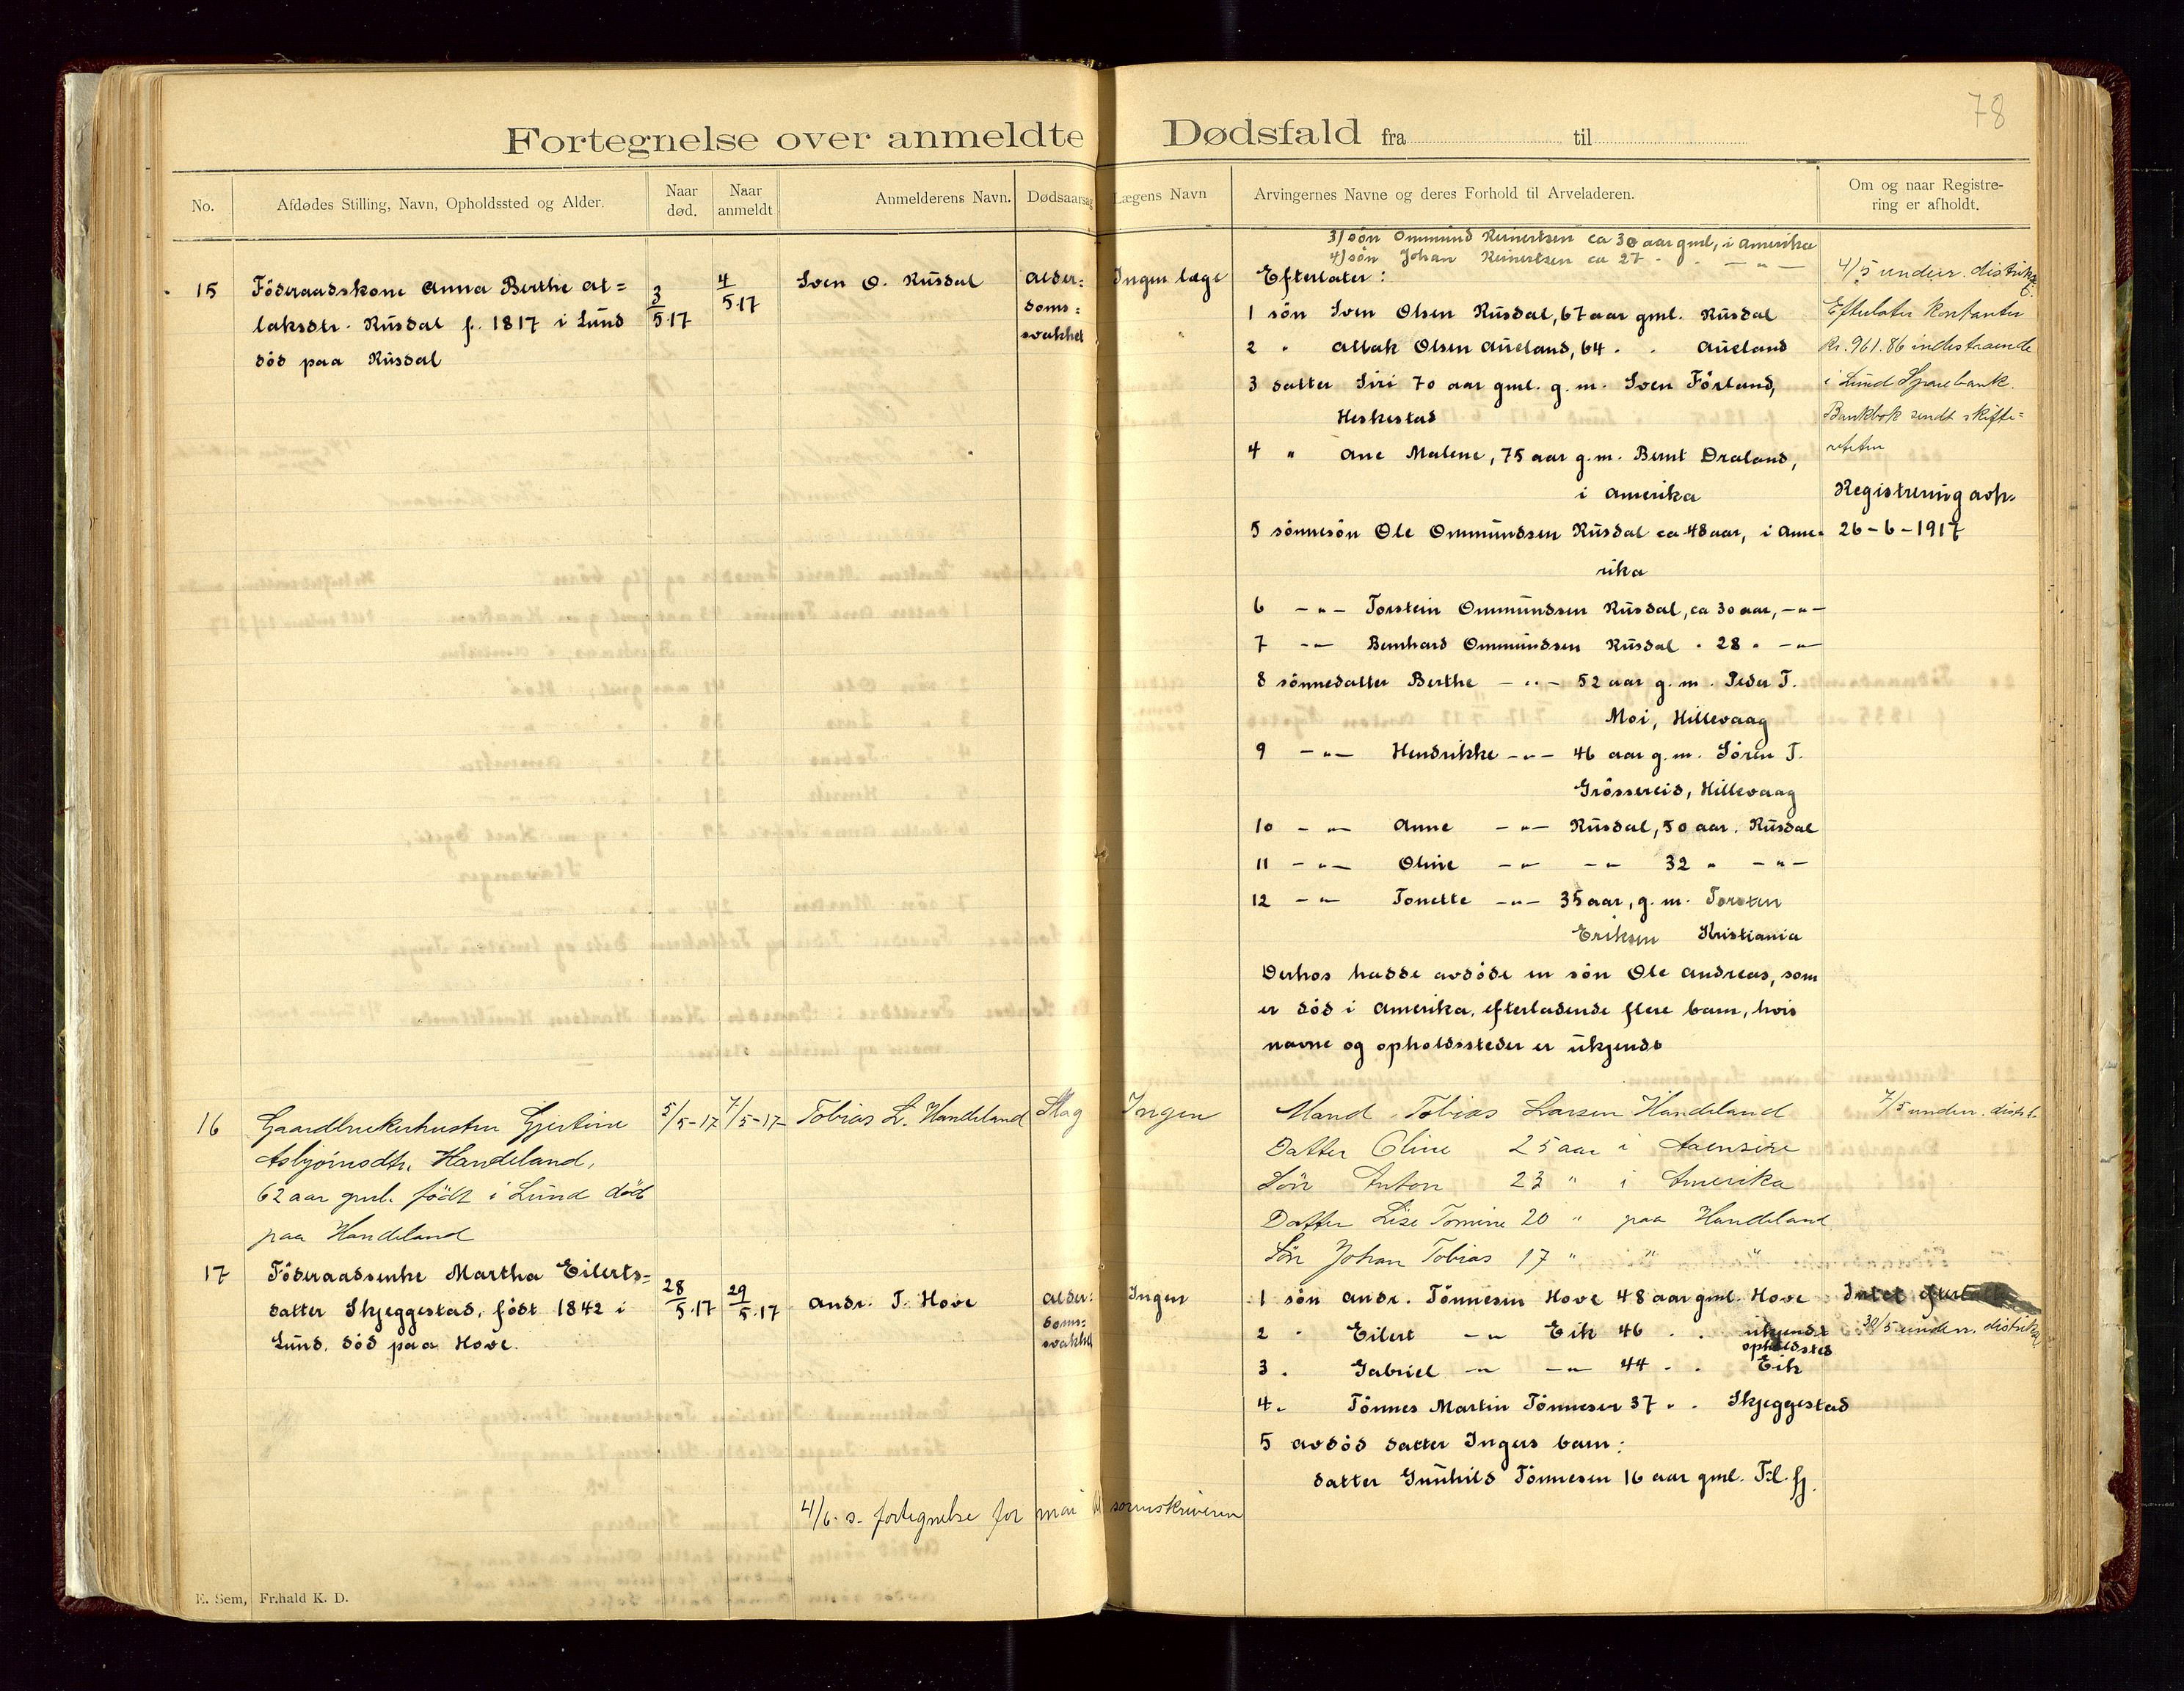 78
Fortegnelse over anmeldte Dødsfald fra til
No.
Afdødes Stilling, Navn, Opholdssted og Alder.
Naar død.
Naar anmeldt
Anmelderens Navn.
Dødsaarsag
Lægens Navn
Arvingernes Navne og deres Forhold til Arveladeren.
Om og naar Registre-
ring er afholdt.
3) søn Ommund Reinertsen ca 30 aar gml, i Amerika
4) søn Johan Reinertsen ca 27 - - - " -
15
Föderaadskone Anna Berthe At=
laksdtr. Rusdal f. 1817 i Lund
död paa Rusdal
3/5.17
4/5.17
Sven O. Rusdal
Alder=
doms=
svakhet
Ingen læge
Efterlater:
1 sön Sven Olsen Rusdal, 67 aar gml. Rusdal
2 " Atlak Olsen Aueland, 64 . . Aueland
3 datter Siri 70 aar gml. g.m. Sven Förland,
Heskestad
4 " Ane Malene, 75 aar g.m. Bernt Draland,
i Amerika
5 sönnesön Ole Ommundsen Rusdal ca 48 aar, i Ame-
rika
6 - " - Torstein Ommundsen Rusdal, ca 30 aar, - " -
7 - " - Bernhard Ommundsen Rusdal . 28 . - " -
8 sönnedatter Berthe - " - 52 aar g.m. Peder T.
Moi, Hillevaag
9 - " - Hendrikke - " - 46 aar g.m. Sören T.
Grössereid, Hillevaag
10 - " - Anne - " - Rusdal, 50 aar. Rusdal
11 - " - Oline - " - - " - 32 " - " -
12 - " - Tonette - " - 35 aar, g.m. Torsten
Eriksen Kristiania
Derhos hadde avdöde en sön Ole Andreas, som
er död i Amerika, efterladende flere barn, hvis
navne og opholdssteder er ukjendt
4/5 underr. distriktsf.
Efterlater kontanter
Kr. 961.86 indestaaende
i Lund Sparebank.
Bankbok sendt skifte=
retten
Registrering avh.
26-6-1917
16
Gaardbrukerhustru Gjertine
Asbjørnsdtr. Handeland,
62 aar gml. født i Lund død
paa Handeland
5/5-17
7/5-17
Tobias L. Handeland
Slag
Ingen
Mand Tobias Larsen Handeland
Datter Oline 25 aar i Aaensire
Søn Anton 23 " i Amerika
Datter Lise Tomine 20 " paa Handeland
Søn Johan Tobias 17 " " "
7/5 underr. distr.
17
Föderaadsenke Martha Eilerts=
datter Skjeggestad, födt 1842 i
Lund. död paa Hove.
28/5.17
29/5.17
Andr. T. Hove
Alder=
doms=
svakhet
Ingen
1 sön Andr. Tönnesen Hove 48 aar gml. Hove
2 " Eilert - " - Eik 46 . . ukjendt
opholdssted
3 . Gabriel - " - - " - 44 . . Eik
4 . Tönnes Martin Tönnesen 37 . . Skjeggestad
5 avdöd datter Ingers barn:
datter Gunhild Tönnesen 16 aar gml.
Intet
30/5 underr. distrikts
4/6. s. fortegnelse for mai til sorenskriveren
E. Sem, Fr.hald K. D.